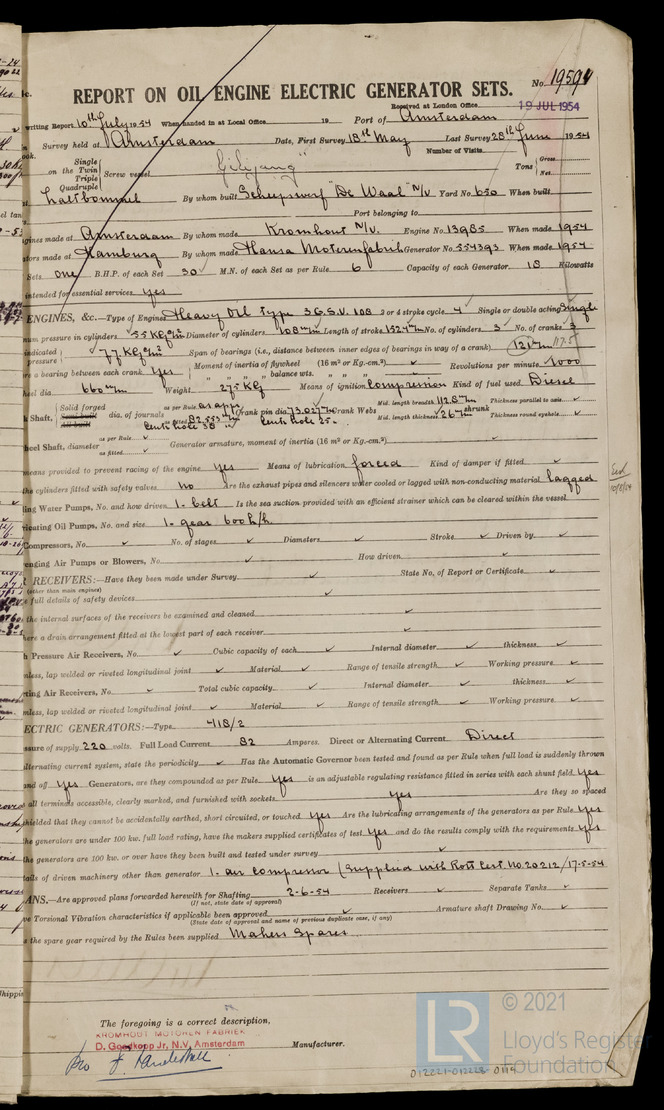 No. 19594
REPORT ON OIL ENGINE ELECTRIC GENERATOR SETS.
Received at London Office 19 JUL 1954
writing Report 10th July 1954 When handed in at Local Office 19 Port of Amsterdam
Survey held at Amsterdam Date, First Survey 18th May Last Survey 28th June 1954
Number of Visits
Single
on the Twin
Triple
Quadruple
Screw vessel
Tons Gross
Net
Zaltbommel By whom built Scheepswerf "De Waal" N/V Yard No 650 When built
Port belonging to
gines made at Amsterdam By whom made Kromhout N/V. Engine No. 13985 When made 1954
ators made at Hamburg By whom made Hansa Motorenfabrik Generator No. 554393 When made 1954
Sets one B.H.P. of each Set 30 M.N. of each Set as per Rule 6 Capacity of each Generator 18 Kilowatts
intended for essential services yes
ENGINES, &c.—Type of Engines Heavy Oil Type 3 G.S.V. 108 2 or 4 stroke cycle 4 Single or double acting Single
mum pressure in cylinders 55 Kg/cm² Diameter of cylinders 108 m/m Length of stroke 152.4 m/m No. of cylinders 3 No. of cranks 3
indicated pressure 7.7 Kg/cm² Span of bearings (i.e., distance between inner edges of bearings in way of a crank) 121 m/m 117.5
re a bearing between each crank Yes Moment of inertia of flywheel (16 m² or Kg.-cm.²) Revolutions per minute 1000
" " " balance wts. " " "
heel dia 660 m/m Weight 275 Kg Means of ignition Compression Kind of fuel used Diesel
k Shaft, Solid forged dia. of journals as per Rule as appr. Crank pin dia 73.027 m/m Crank Webs Mid. length breadth 112.8 m/m Thickness parallel to axis
as fitted 82.553 m/m Mid. length thickness 26 m/m shrunk Thickness round eyehole
Centr hole 38 Centr hole 25
heel Shaft, diameter as per Rule
as fitted
Generator armature, moment of inertia (16 m² or Kg.-cm.²)
means provided to prevent racing of the engine yes Means of lubrication forced Kind of damper if fitted
the cylinders fitted with safety valves no Are the exhaust pipes and silencers water cooled or lagged with non-conducting material lagged
ling Water Pumps, No. and how driven 1- belt Is the sea suction provided with an efficient strainer which can be cleared within the vessel
ricating Oil Pumps, No. and size 1- gear 600 l/h.
Compressors, No. No. of stages Diameters Stroke Driven by
enging Air Pumps or Blowers, No. How driven
R RECEIVERS:—Have they been made under Survey State No. of Report or Certificate
(other than main engines)
e full details of safety devices
the internal surfaces of the receivers be examined and cleaned
here a drain arrangement fitted at the lowest part of each receiver
h Pressure Air Receivers, No. Cubic capacity of each Internal diameter thickness
mless, lap welded or riveted longitudinal joint Material Range of tensile strength Working pressure
rting Air Receivers, No. Total cubic capacity Internal diameter thickness
mless, lap welded or riveted longitudinal joint Material Range of tensile strength Working pressure
ECTRIC GENERATORS:—Type 418/2
ssure of supply 220 volts. Full Load Current 82 Amperes. Direct or Alternating Current Direct
alternating current system, state the periodicity Has the Automatic Governor been tested and found as per Rule when full load is suddenly thrown
and off yes Generators, are they compounded as per Rule yes is an adjustable regulating resistance fitted in series with each shunt field yes
all terminals accessible, clearly marked, and furnished with sockets yes Are they so spaced
hielded that they cannot be accidentally earthed, short circuited, or touched yes Are the lubricating arrangements of the generators as per Rule yes
the generators are under 100 kw. full load rating, have the makers supplied certificates of test yes and do the results comply with the requirements yes
the generators are 100 kw. or over have they been built and tested under survey
tails of driven machinery other than generator 1- air compressor (supplied with Rott Cert no 20212/17-5-54
ANS.—Are approved plans forwarded herewith for Shafting 2-6-54 Receivers Separate Tanks
(If not, state date of approval)
ve Torsional Vibration characteristics if applicable been approved Armature shaft Drawing No.
(State date of approval and name of previous duplicate case, if any)
s the spare gear required by the Rules been supplied Makers Spares
The foregoing is a correct description,
KROMHOUT MOTOREN FABRIEK
D. Goedkoop Jr, N.V. Amsterdam
Manufacturer.
LR © 2021
Lloyd's Register
Foundation
012221-012228-0119